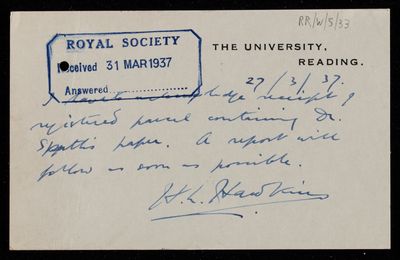 RR/W/5/33
ROYAL SOCIETY
Received 31 MAR 1937
Answered
THE UNIVERSITY,
READING.
27/3/37.
I have to acknowledge receipt of
registered parcel containing Dr.
paper. A report will
follow as soon as possible.
H. L. Hawkins